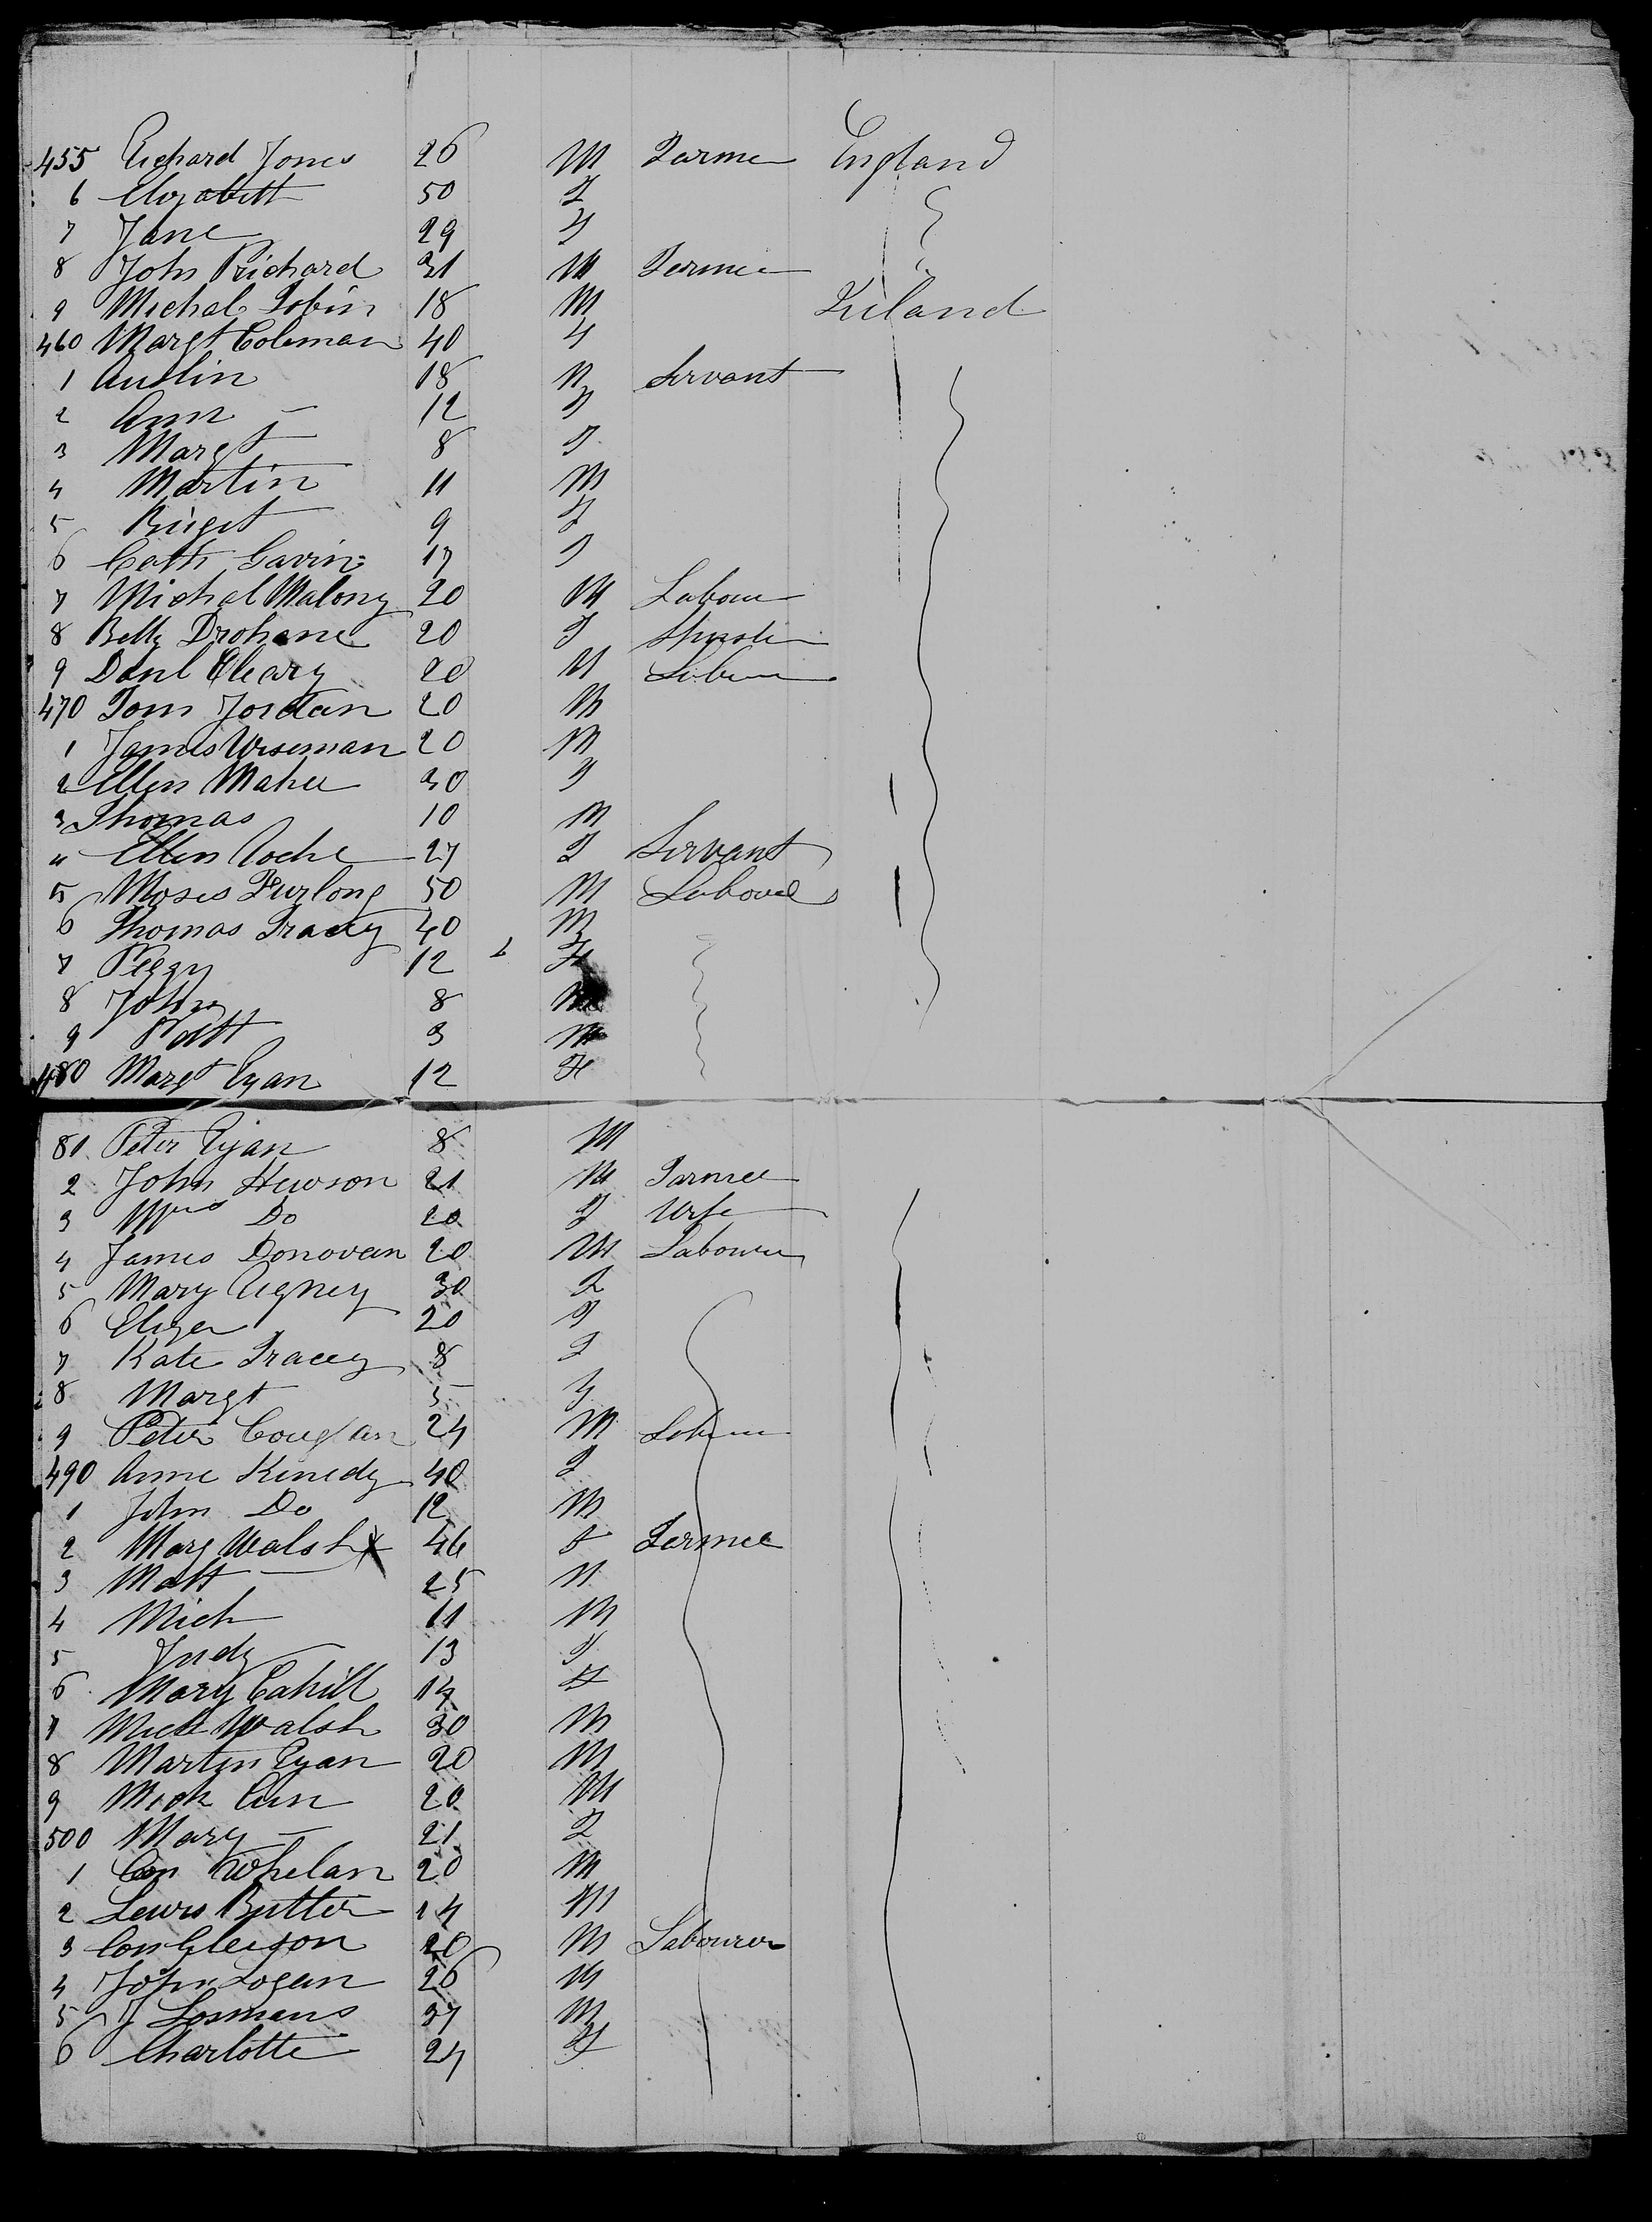 455 Richard Jones 26 M Farmer England
6 Elizabeth 50 F
7 Jane 29 F
8 John Richard 31 M Farmer
9 Michal Tobin 18 M Ireland
460 Margt Coleman 40 F
1 Austin 18 M Servant
2 Ann — 12 F
3 Margt — 8 F
4 Martin 11 M
5 Briget 9 F
6 Cath Gavin 17 F
7 Michal Malony 20 M Labour
8 Betty Drohane 20 F
9 Danl Cleary 20 M Labour
470 Tom Jordan 20 M
1 James Wiseman 20 M
2 Ellen Maher 30 F
3 Thomas 10 M
4 Ellen Roche 27 F Servant
5 Moses Furlong 50 M Labour
6 Thomas Tracey 40 M
7 Peggy 12 F
8 John 8 M
9 Patt 3 M
480 Margt Ryan 12 F
81 Peter Ryan 8 M
2 John Hewson 21 M Farmer
3 Mrs Do 20 F Wife
4 James Donovan 20 M Labourer
5 Mary Agney 30 F
6 Eliza 20 F
7 Kate Tracey 8 F
8 Margt 5 F
9 Peter Couglan 24 M Labour
490 Anne Kenedy 40 F
1 John Do 12 M
2 Marg Walsh X 46 F Farmer
3 Matt — 25 M
4 Mich 11 M
5 Judy 13 F
6 Mary Cahill 14 F
7 Mich Walsh 30 M
8 Martin Ryan 20 M
9 Mich 20 M
500 Mary — 21 F
1 Con Whelan 20 M
2 Lewis Butler 14 M
3 Con Gleeson 20 M Labourer
4 John Logan 26 M
5 J 37 M
6 Charlotte 24 F